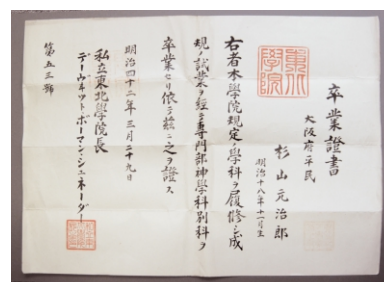 卒業證書
大阪府平民
杉山元治郎
明治十八年十一月生
東北學院
右者本學院規定ノ學科ヲ履修シ成
規ノ試業ヲ經テ專門部神學科別科ヲ
卒業セリ依テ茲ニ之ヲ證ス
明治四十二年三月二十九日
私立東北學院長
デーヴィットボーマン・シュネーダー
第五三號